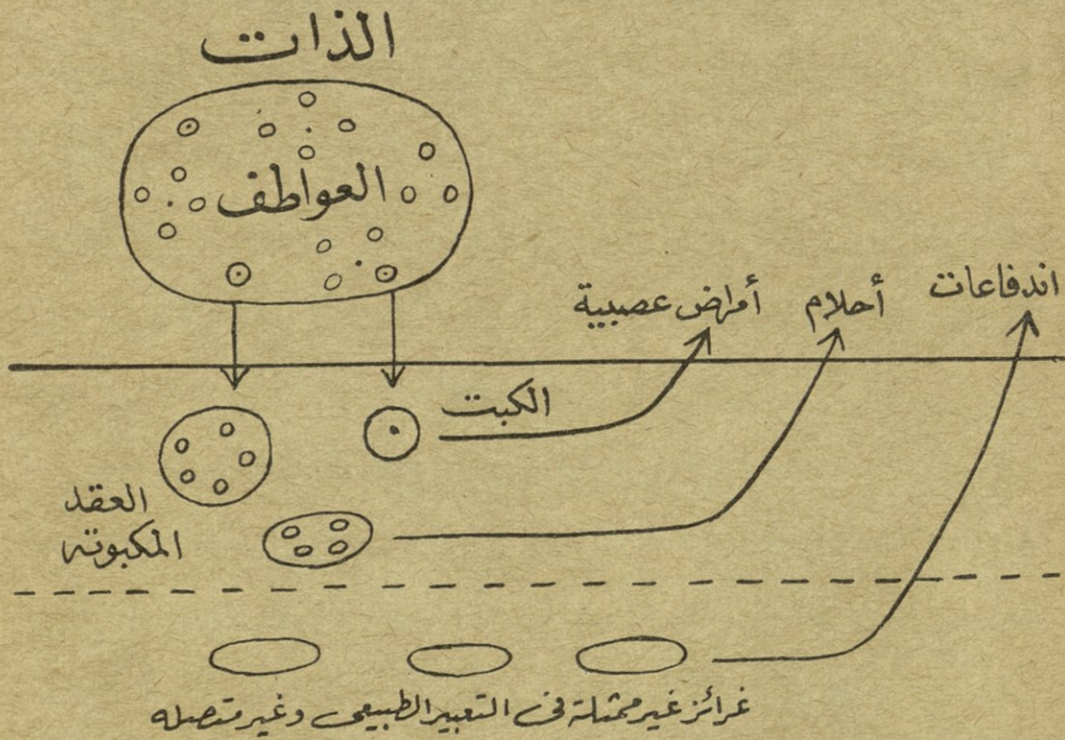 الذات
العواطف
اندفاعات
أحلام
أمراض عصبية
الكبت
العقد
المكبوته
غرائز غير ممثلة فى التعبير الطبيعى وغير متصله